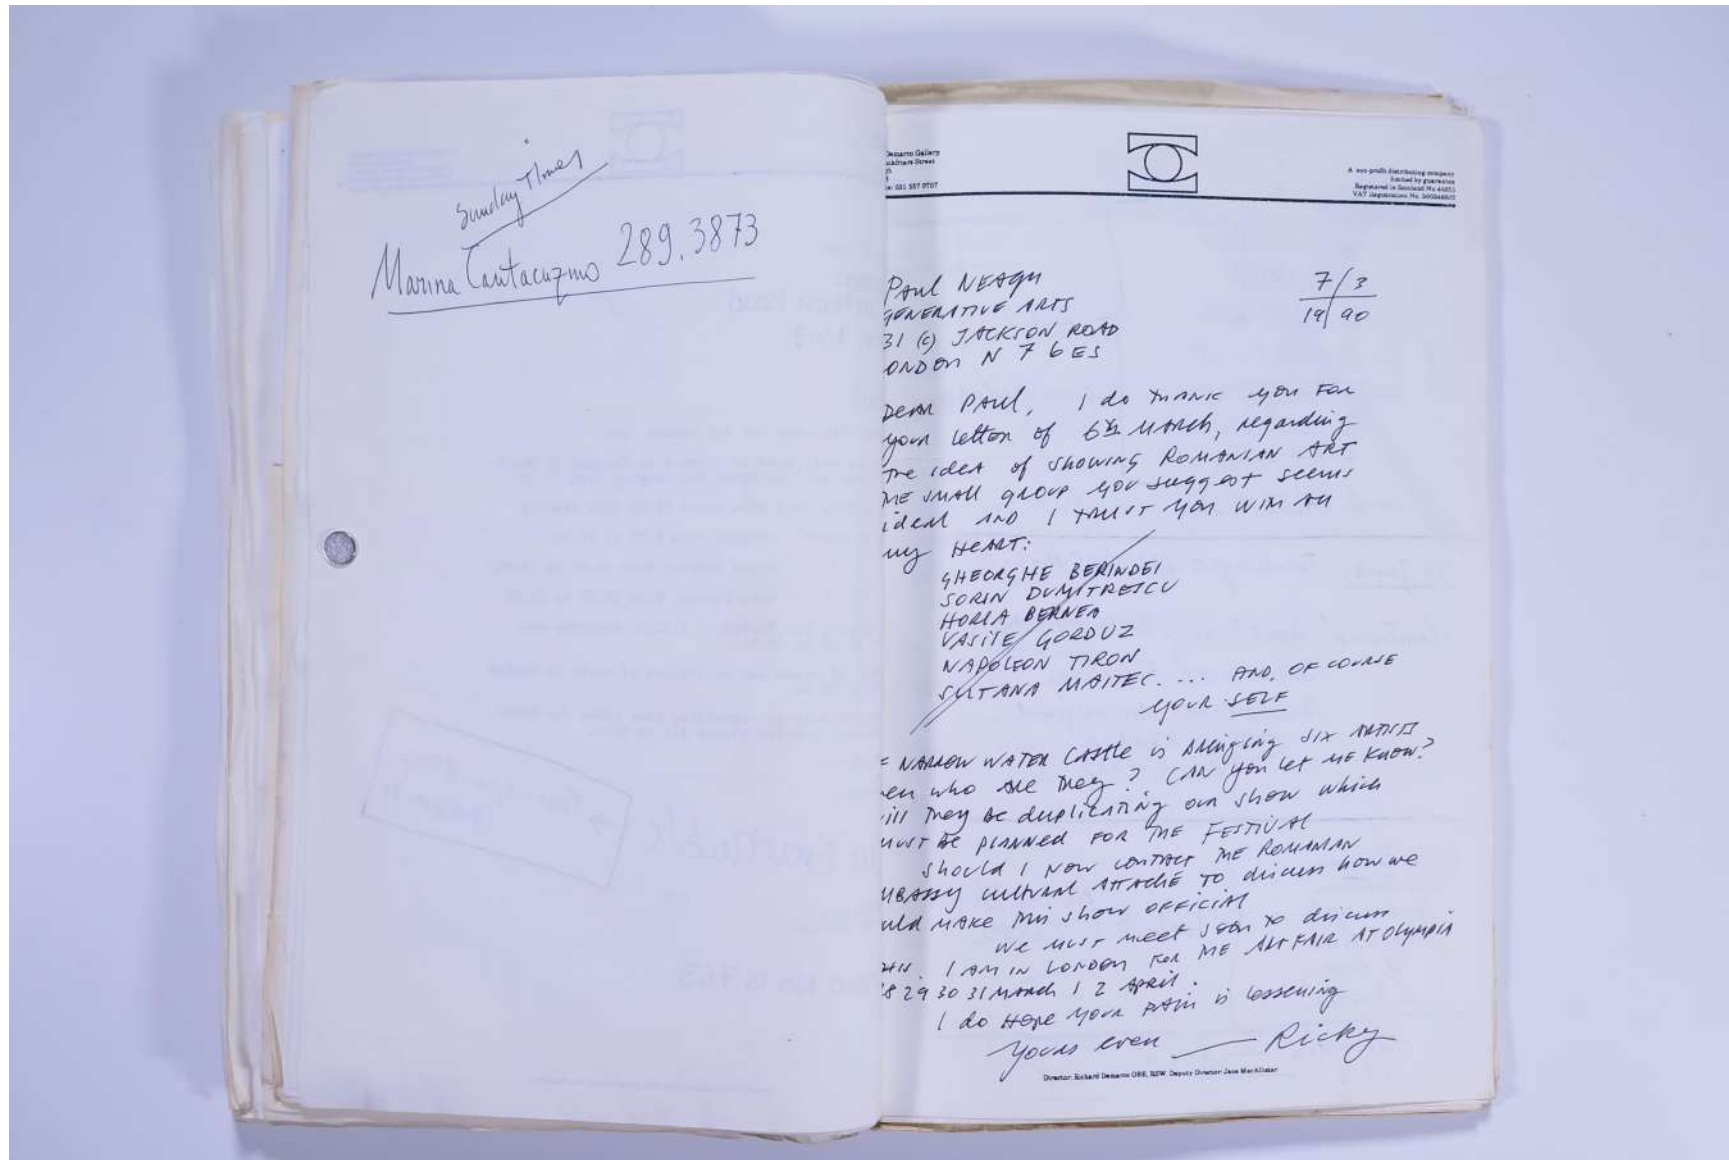 Sunday Times
Marina Cantacuzino 289.3873
Demarco Gallery
Street
: 031 557 0707
A non-profit distributing company
limited by guarantee
Registered in Scotland No
VAT Registration No.
PAUL NEAGU
GENERATIVE ARTS
31 (c) JACKSON ROAD
ONDON N 7 6ES
7/3
19/90
DEAR PAUL, I do THANK you FOR
your letter of 6th MARCH, regarding
THE idea of SHOWING ROMANIAN ART
THE SMALL group you suggest seems
ideal AND I TRUST you WITH All
my HEART:
GHEORGHE BERINDEI
SORIN DUMITRESCU
HORIA BERNEA
VASILE GORDUZ
NAPOLEON TIRON
SULTANA MAITEC.... AND, OF COURSE
YOUR SELF
F NARROW WATER CASTLE is bringing SIX ARTISTS
en who ARE They? CAN you let ME KNOW?
ill They BE duplicating our show which
MUST BE PLANNED FOR THE FESTIVAL
Should I NOW CONTACT THE ROMANIAN
MBASSY CULTURAL ATTACHÉ TO discuss how we
uld MAKE THIS show OFFICIAL
We MUST meet soon to discuss
I AM IN LONDON FOR THE ART FAIR AT OLYMPIA
8 29 30 31 March 1 2 April.
I do HOPE YOUR PAIN is lessening
Yours ever — Ricky
Director: Richard Demarco OBE, RSW. Deputy Director: Jane MacAllister